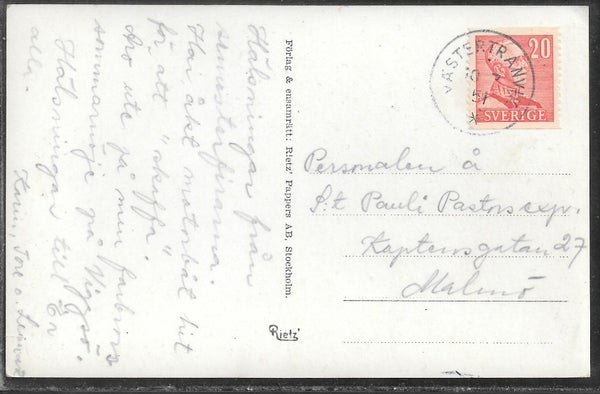 Hälsningar från
semesterfirarna.
Har åkt motorbåt hit
för att "skaffa".
Bro ute på min farbrors
sommarnöje på "Viggsö".
Hälsningar till Er
alla.
Karin, Tore o.
Förlag & ensamrätt: Rietz' Pappers AB, Stockholm.
Rietz'
VÄSTERTRANVIK
10 7
51
20
SVERIGE
Personalen å
S:t Pauli Pastorsexp.
Kaptensgatan 27
Malmö